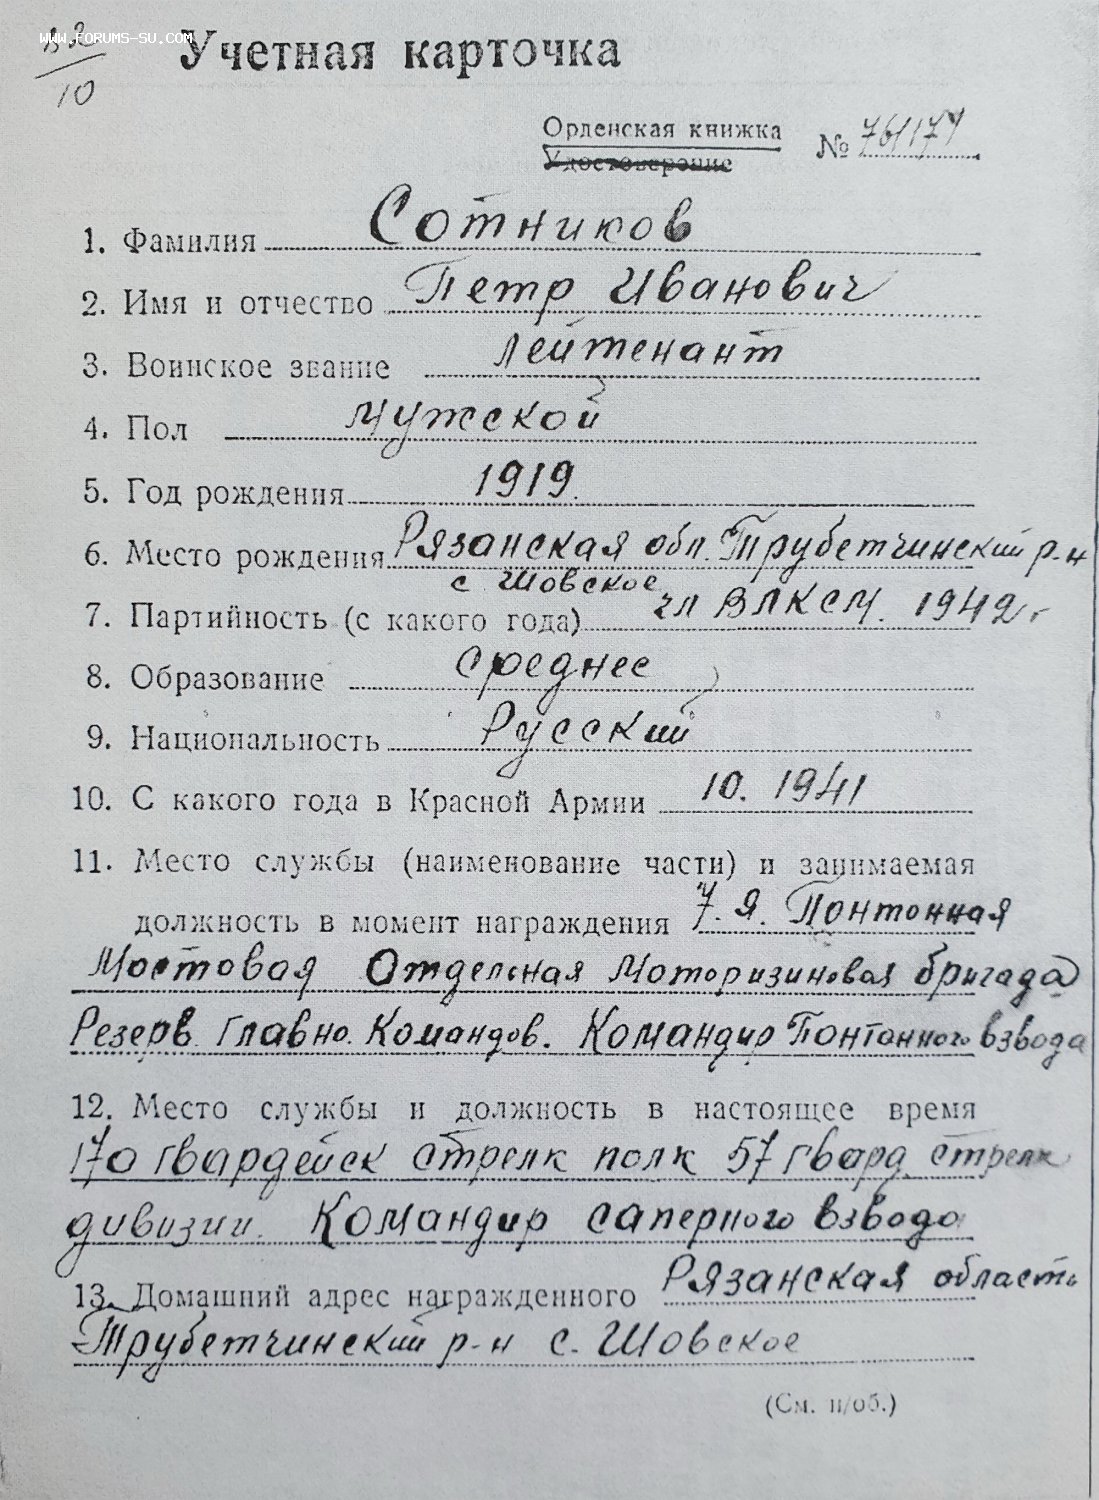 www.forums-su.com
10
Учетная карточка
Орденская книжка
Удостоверение
№
1. Фамилия Сотников
2. Имя и отчество Петр Иванович
3. Воинское звание Лейтенант
4. Пол Мужской
5. Год рождения 1919.
6. Место рождения Рязанская обл. Трубетчинский р-н
с Шовское
7. Партийность (с какого года) чл ВЛКСМ. 1942 г.
8. Образование среднее
9. Национальность Русский
10. С какого года в Красной Армии 10. 1941
11. Место службы (наименование части) и занимаемая
должность в момент награждения 7. я. Понтонная
Мостовая Отдельная Моторизиновая бригада
Резерв Главно. Командов. Командир Понтонного взвода
12. Место службы и должность в настоящее время
170 гвардейск стрелк полк 57 гвард. стрелк
дивизии. Командир саперного взвода
13. Домашний адрес награжденного Рязанская область
Трубетчинский р-н с. Шовское
(См. н/об.)